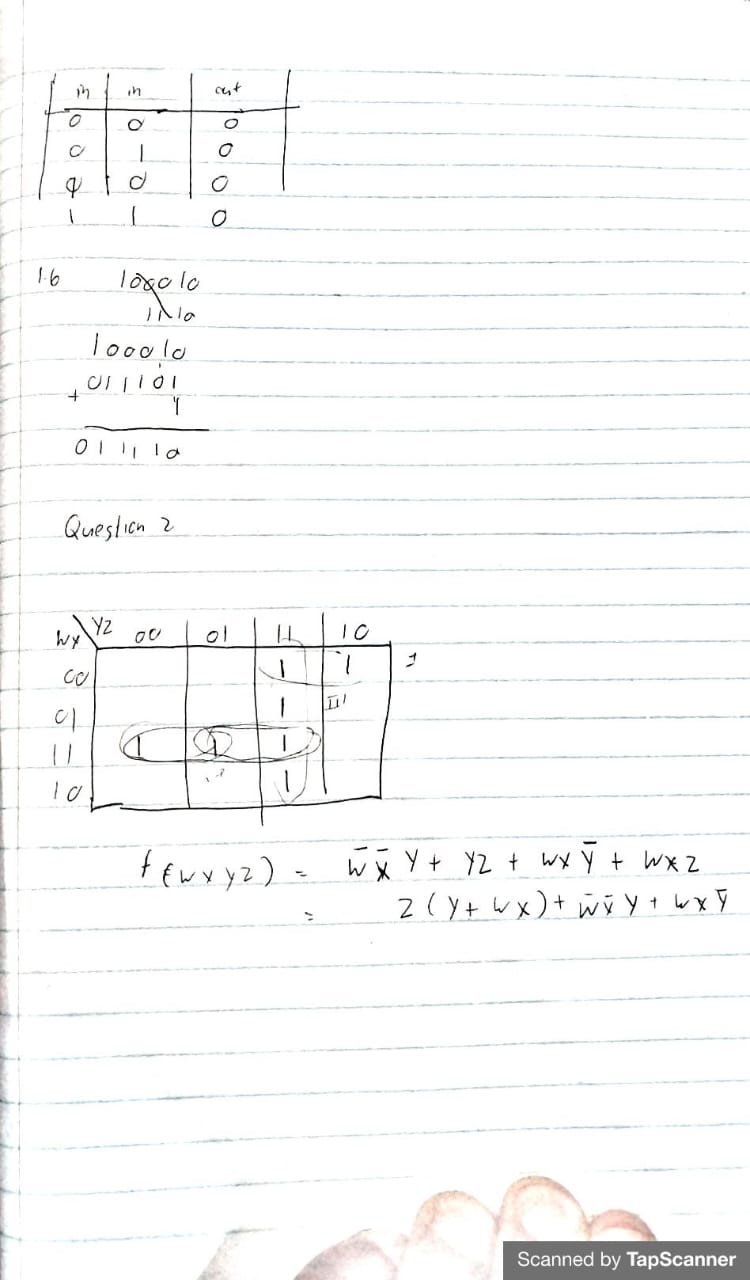 in in out
0 0 0
0 1 0
1 0 0
1 1 0
1.6 100010
1110
100010
+ 011101
1
011110
Question 2
wx YZ 00 01 11 10
00 1 1
01 1
11 1 1 1
10 1
f(wxyz) = w̄x̄y + yz + wxȳ + wxz
= z(y + wx) + w̄x̄y + wxȳ
Scanned by TapScanner